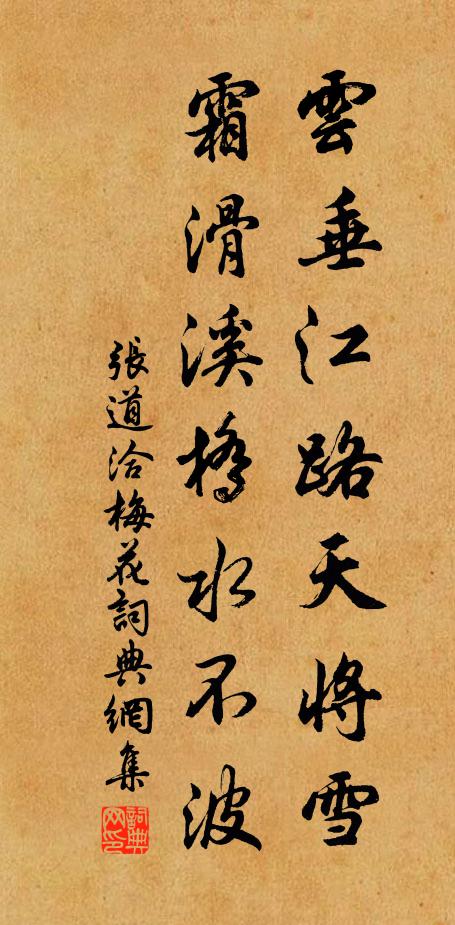 雲垂江路天將雪
霜滑溪橋水不波
張道洽梅花詞典網集
詞典網印